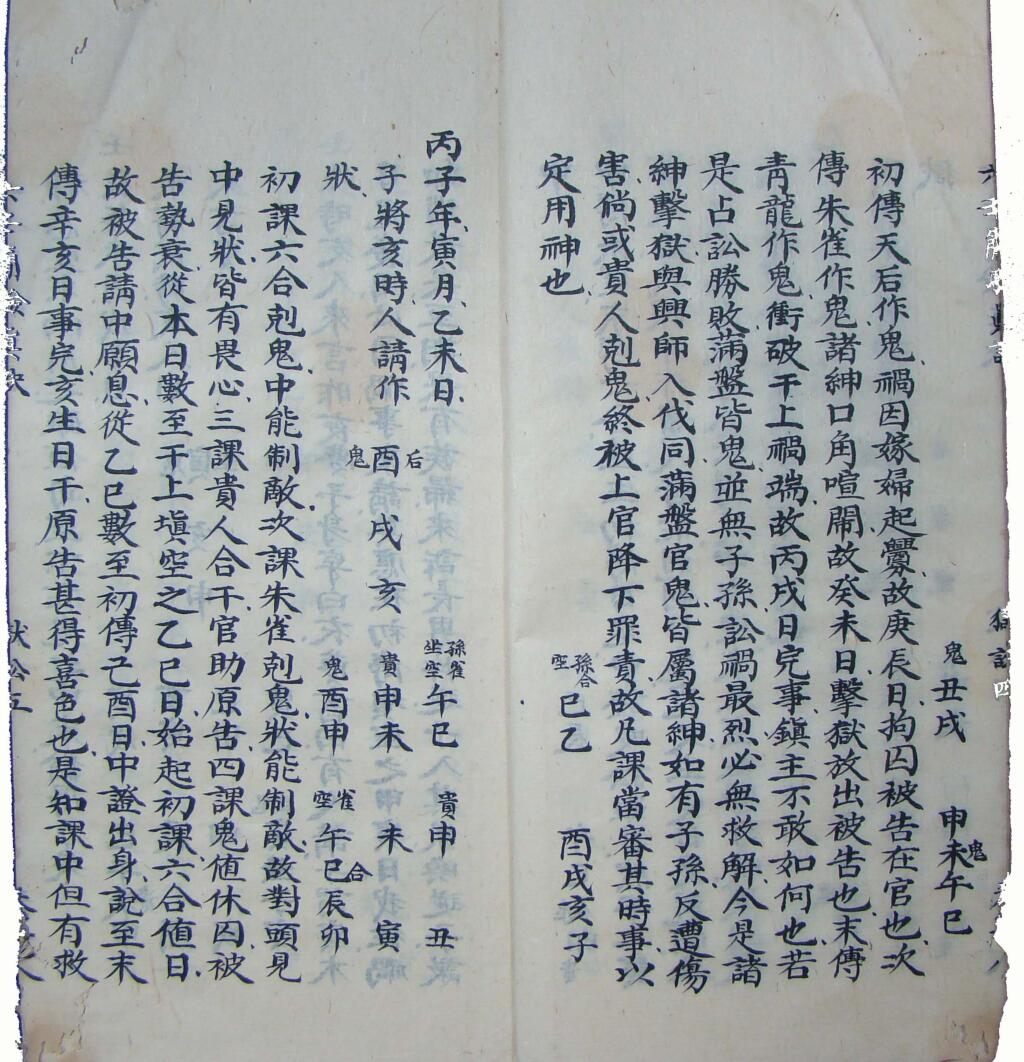 鬼丑戌　申未鬼午巳
初傳天后作鬼禍因嫁婦起釁故庚辰日拘囚被告在官也次
傳朱雀作鬼諸紳口角喧鬧故癸未日擊獄放出被告也末傳
青龍作鬼衝破干上禍端故丙戌日完事鎮主不敢如何也若
是占訟勝敗滿盤皆鬼並無子孫訟禍最烈必無救解今是諸
紳擊獄與興師入伐同滿盤官鬼皆屬諸紳如有子孫反遭傷
害倘或貴人剋鬼終被上官降下罪責故凡課當審其時事以
定用神也　孫合空巳乙　酉戌亥子
丙子年寅月乙未日　孫雀坐空午巳　貴申　丑
子將亥時人請作　后鬼酉戌亥　貴申未　未　寅
狀　鬼酉申　雀空午巳合辰卯
初課六合剋鬼中能制敵次課朱雀剋鬼狀能制敵故對頭見
中見狀皆有畏心三課貴人合干官助原告四課鬼值休囚被
告勢衰從本日數至干上塡空之乙巳日始起初課六合值日
故被告請中願息從乙巳數至初傳己酉日中證出身說至末
傳辛亥日事完亥生日干原告甚得喜色也是知課中但有救